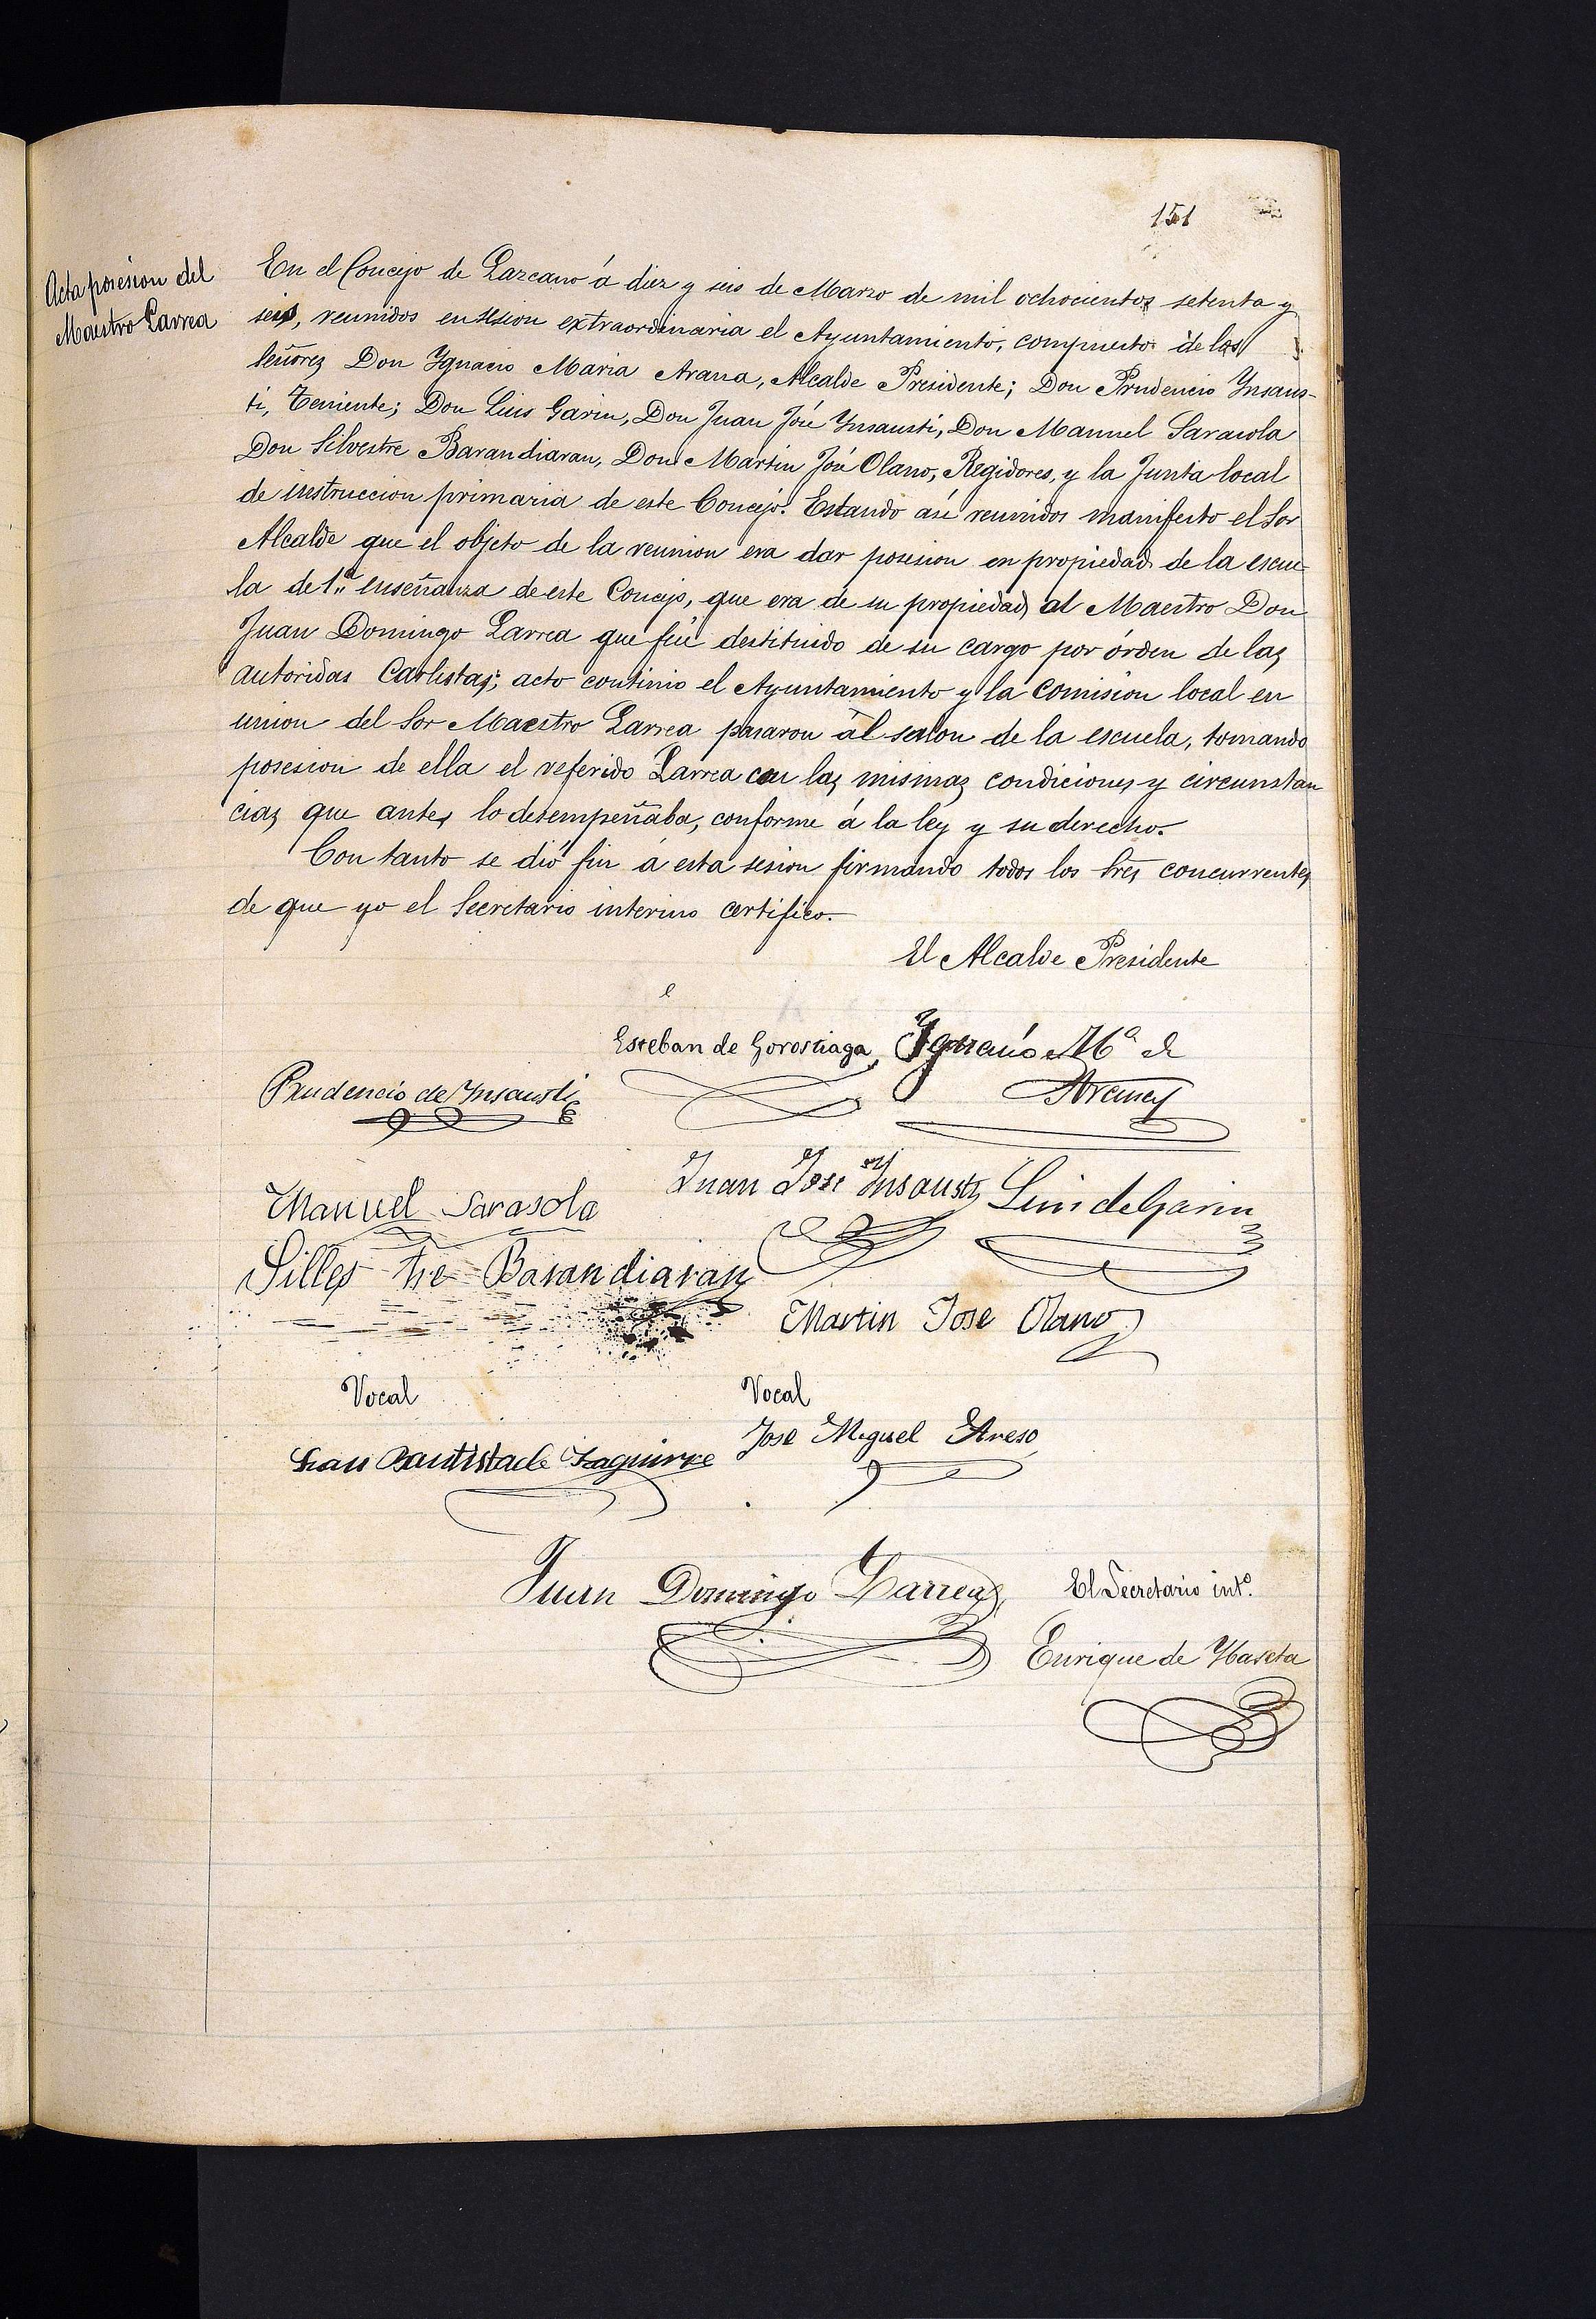 151
Acta posesion del
Maestro Larrea
En el Concejo de Lazcano á diez y seis de Marzo de mil ochocientos setenta y
seis, reunidos en sesion extraordinaria el Ayuntamiento, compuesto de los
Señores Don Ygnacio Maria Arana, Alcalde Presidente; Don Prudencio Ynsaus-
ti, Teniente; Don Luis Garin, Don Juan José Ynsausti, Don Manuel Sarasola
Don Silvestre Barandiaran, Don Martin José Olano, Regidores, y la Junta local
de instruccion primaria de este Concejo. Estando asi reunidos manifesto el Sor
Alcalde que el objeto de la reunion era dar posesion en propiedad de la escue-
la de 1ª enseñanza de este Concejo, que era de su propiedad, al Maestro Don
Juan Domingo Larrea que fué destituido de su cargo por órden de las
autoridas Carlistas; acto continio el Ayuntamiento y la Comision local en
union del Sor Maestro Larrea pasaron al salon de la escuela, tomando
posesion de ella el referido Larrea con las mismas condiciones y circunstan
cias que antes lo desempeñaba, conforme á la ley y su derecho.
Con tanto se dió fin á esta sesion firmando todos los Sres concurrentes
de que yo el Secretario interino certifico.
El Alcalde Presidente
Esteban de Gorostiaga Ygnacio Mª de
Prudencio de Ynsausti Arana
Juan Jose Ynsausti Luis de Garin
Manuel Sarasola
Silbes tre Barandiaran
Martin Jose Olano
Vocal Vocal
Juan Bautista de Izaguirre Jose Miguel Areso
Juan Domingo Larrea El Secretario intº.
Enrique de